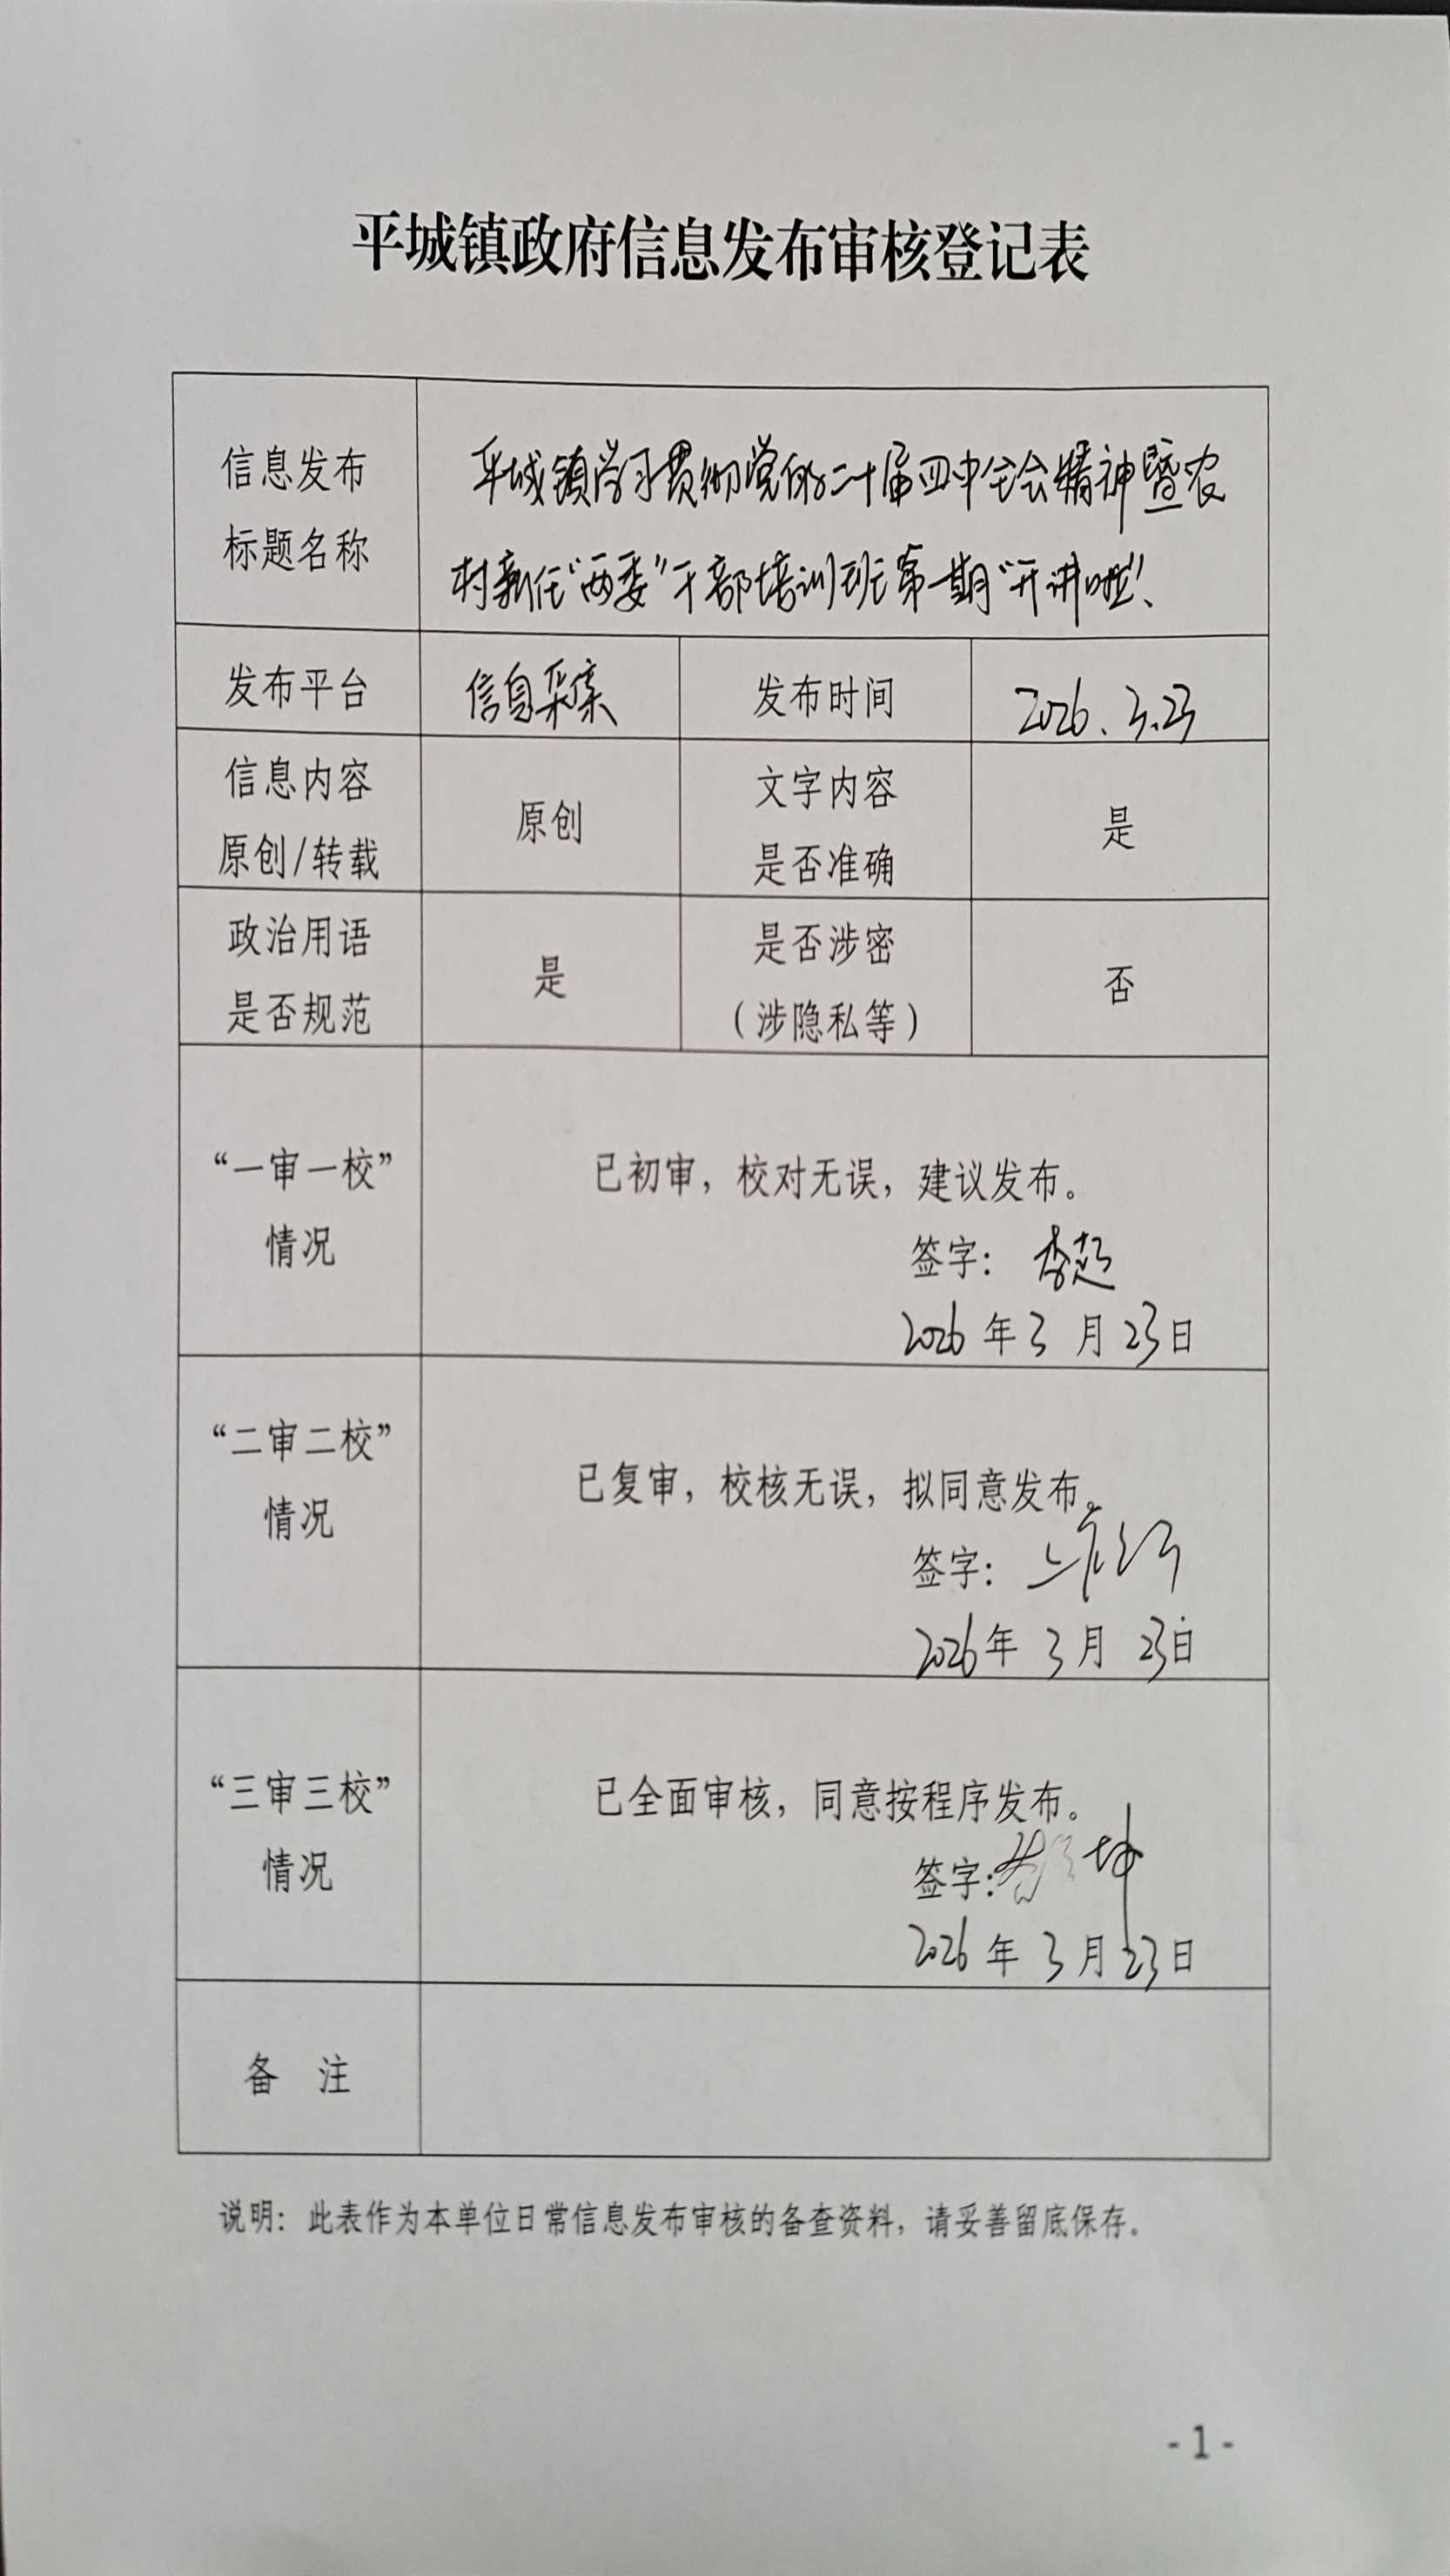 平城镇政府信息发布审核登记表
信息发布
标题名称
平城镇学习贯彻党的二十届四中全会精神暨农
村新任“两委”干部培训班第一期“开讲啦”!
发布平台
信息采集
发布时间
2026.3.23
信息内容
原创/转载
原创
文字内容
是否准确
是
政治用语
是否规范
是
是否涉密
(涉隐私等)
否
“一审一校”
情况
已初审,校对无误,建议发布。
签字: 李超
2026年3月23日
“二审二校”
情况
已复审,校核无误,拟同意发布。
签字:
2026年3月23日
“三审三校”
情况
已全面审核,同意按程序发布。
签字:
2026年3月23日
备 注
说明: 此表作为本单位日常信息发布审核的备查资料,请妥善留底保存。
- 1 -